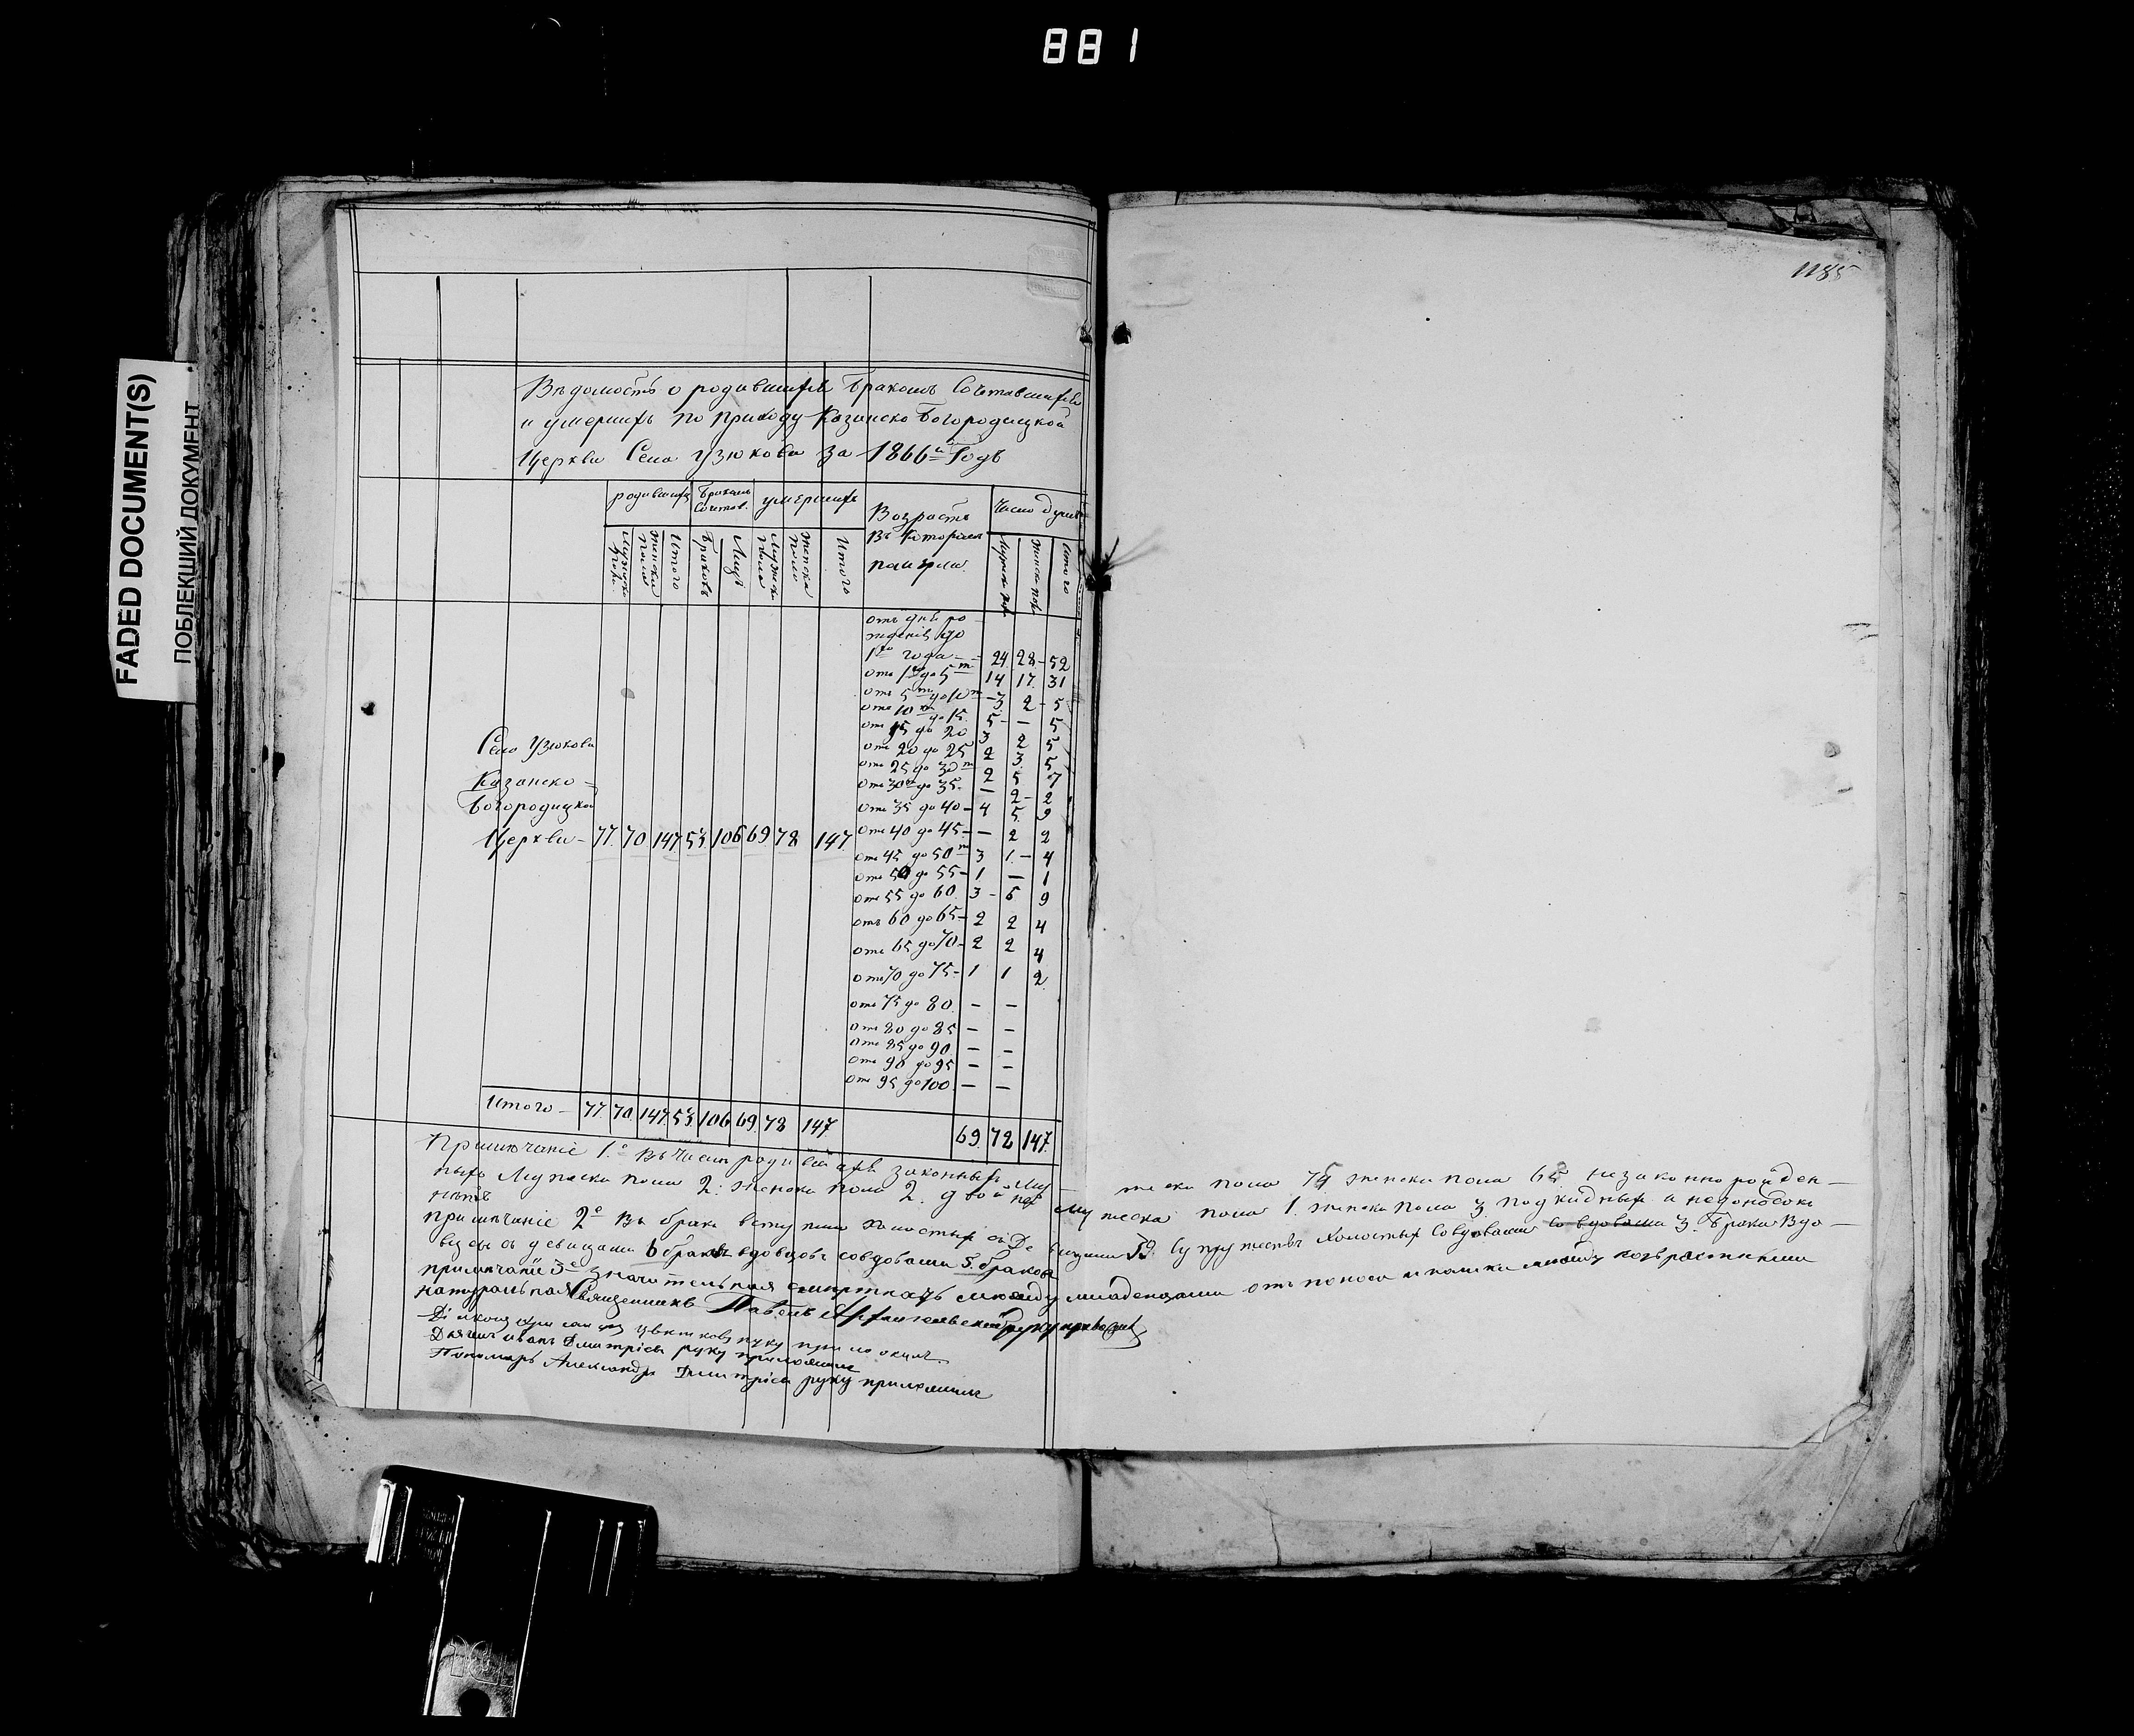 881
FADED DOCUMENT(S)
ПОБЛЕКШИЙ ДОКУМЕНТ
1185
Вѣдомость о родившихся Бракомъ Сочетавшихся
и умершихъ по приходу Казанско Богородицкой
Церкви Села Узюкова за 1866й Годъ
родивших Бракомъ Сочетав. умершихъ Возрастъ Число душъ
Въ которомъ
померли
Мужеска пола Женска Пола Итого Браковъ Лицъ Мужеска Пола Женска Пола Итого Мужеска пол. Женска пол. Итого
отъ дня ро
жденія до
1го года 24 28 52
отъ 1го до 5т 14 17 31
отъ 5т до 10т 3 2 5
отъ 10т до 15 5 — 5
отъ 15 до 20 3 2 5
отъ 20 до 25 2 3 5
отъ 25 до 30т 2 5 7
отъ 30т до 35 — 2 2
отъ 35 до 40 4 5 9
отъ 40 до 45 — 2 2
отъ 45 до 50т 3 1 4
отъ 50 до 55 1 — 1
отъ 55 до 60 3 6 9
отъ 60 до 65 2 2 4
отъ 65 до 70 2 2 4
отъ 70 до 75 1 1 2
отъ 75 до 80 — —
отъ 80 до 85 — —
отъ 85 до 90 — —
отъ 90 до 95 — —
отъ 95 до 100 — —
Село Узюкова
Казанско
Богородицкой
Церкви 77 70 147 53 106 69 78 147
Итого 77 70 147 53 106 69 78 147 69 78 147
Примѣчаніе 1е Въ числѣ родившихся законныхъ Му
жеска пола 75 женска пола 65 незаконнорожден
ныхъ Мужеска пола 2 женска пола 2
Мужеска пола 1 женска пола 3 подкидных и недоносокъ
нѣтъ
примѣчаніе 2е Въ бракъ вступили холостых съ Де
вицами 39 Супружествъ Холостых Совдовами со вдовами 3 Брака Вдо
вцы съ девицами 6 браковъ вдовцовъ совдовами 5 браковъ
примѣчаніе 3е значительная смертность между младенцами отъ поноса и кашля между возрастными
натуральная Священникъ Павелъ руку приложилъ
Діаконъ Цвѣтковъ руку приложилъ
Дьячекъ Иванъ Дмитріевъ руку приложилъ
Пономарь Александръ Димитріевъ руку приложилъ